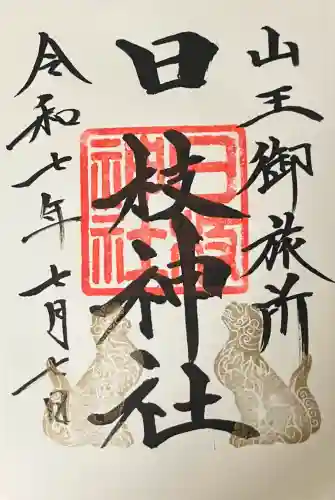 山王御旅所
日枝神社
令和七年七月七日
日枝
神社